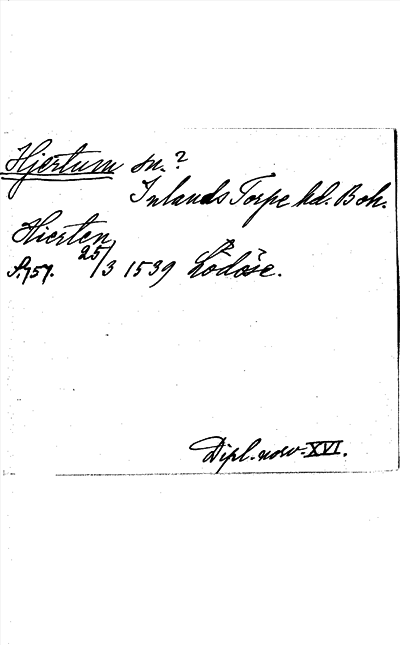 Hjertum sn. ?
Inlands Torpe hd. Boh.
Hierten
S. 757. 25/3 1539 Lödöse.
Dipl. norv. XVI.